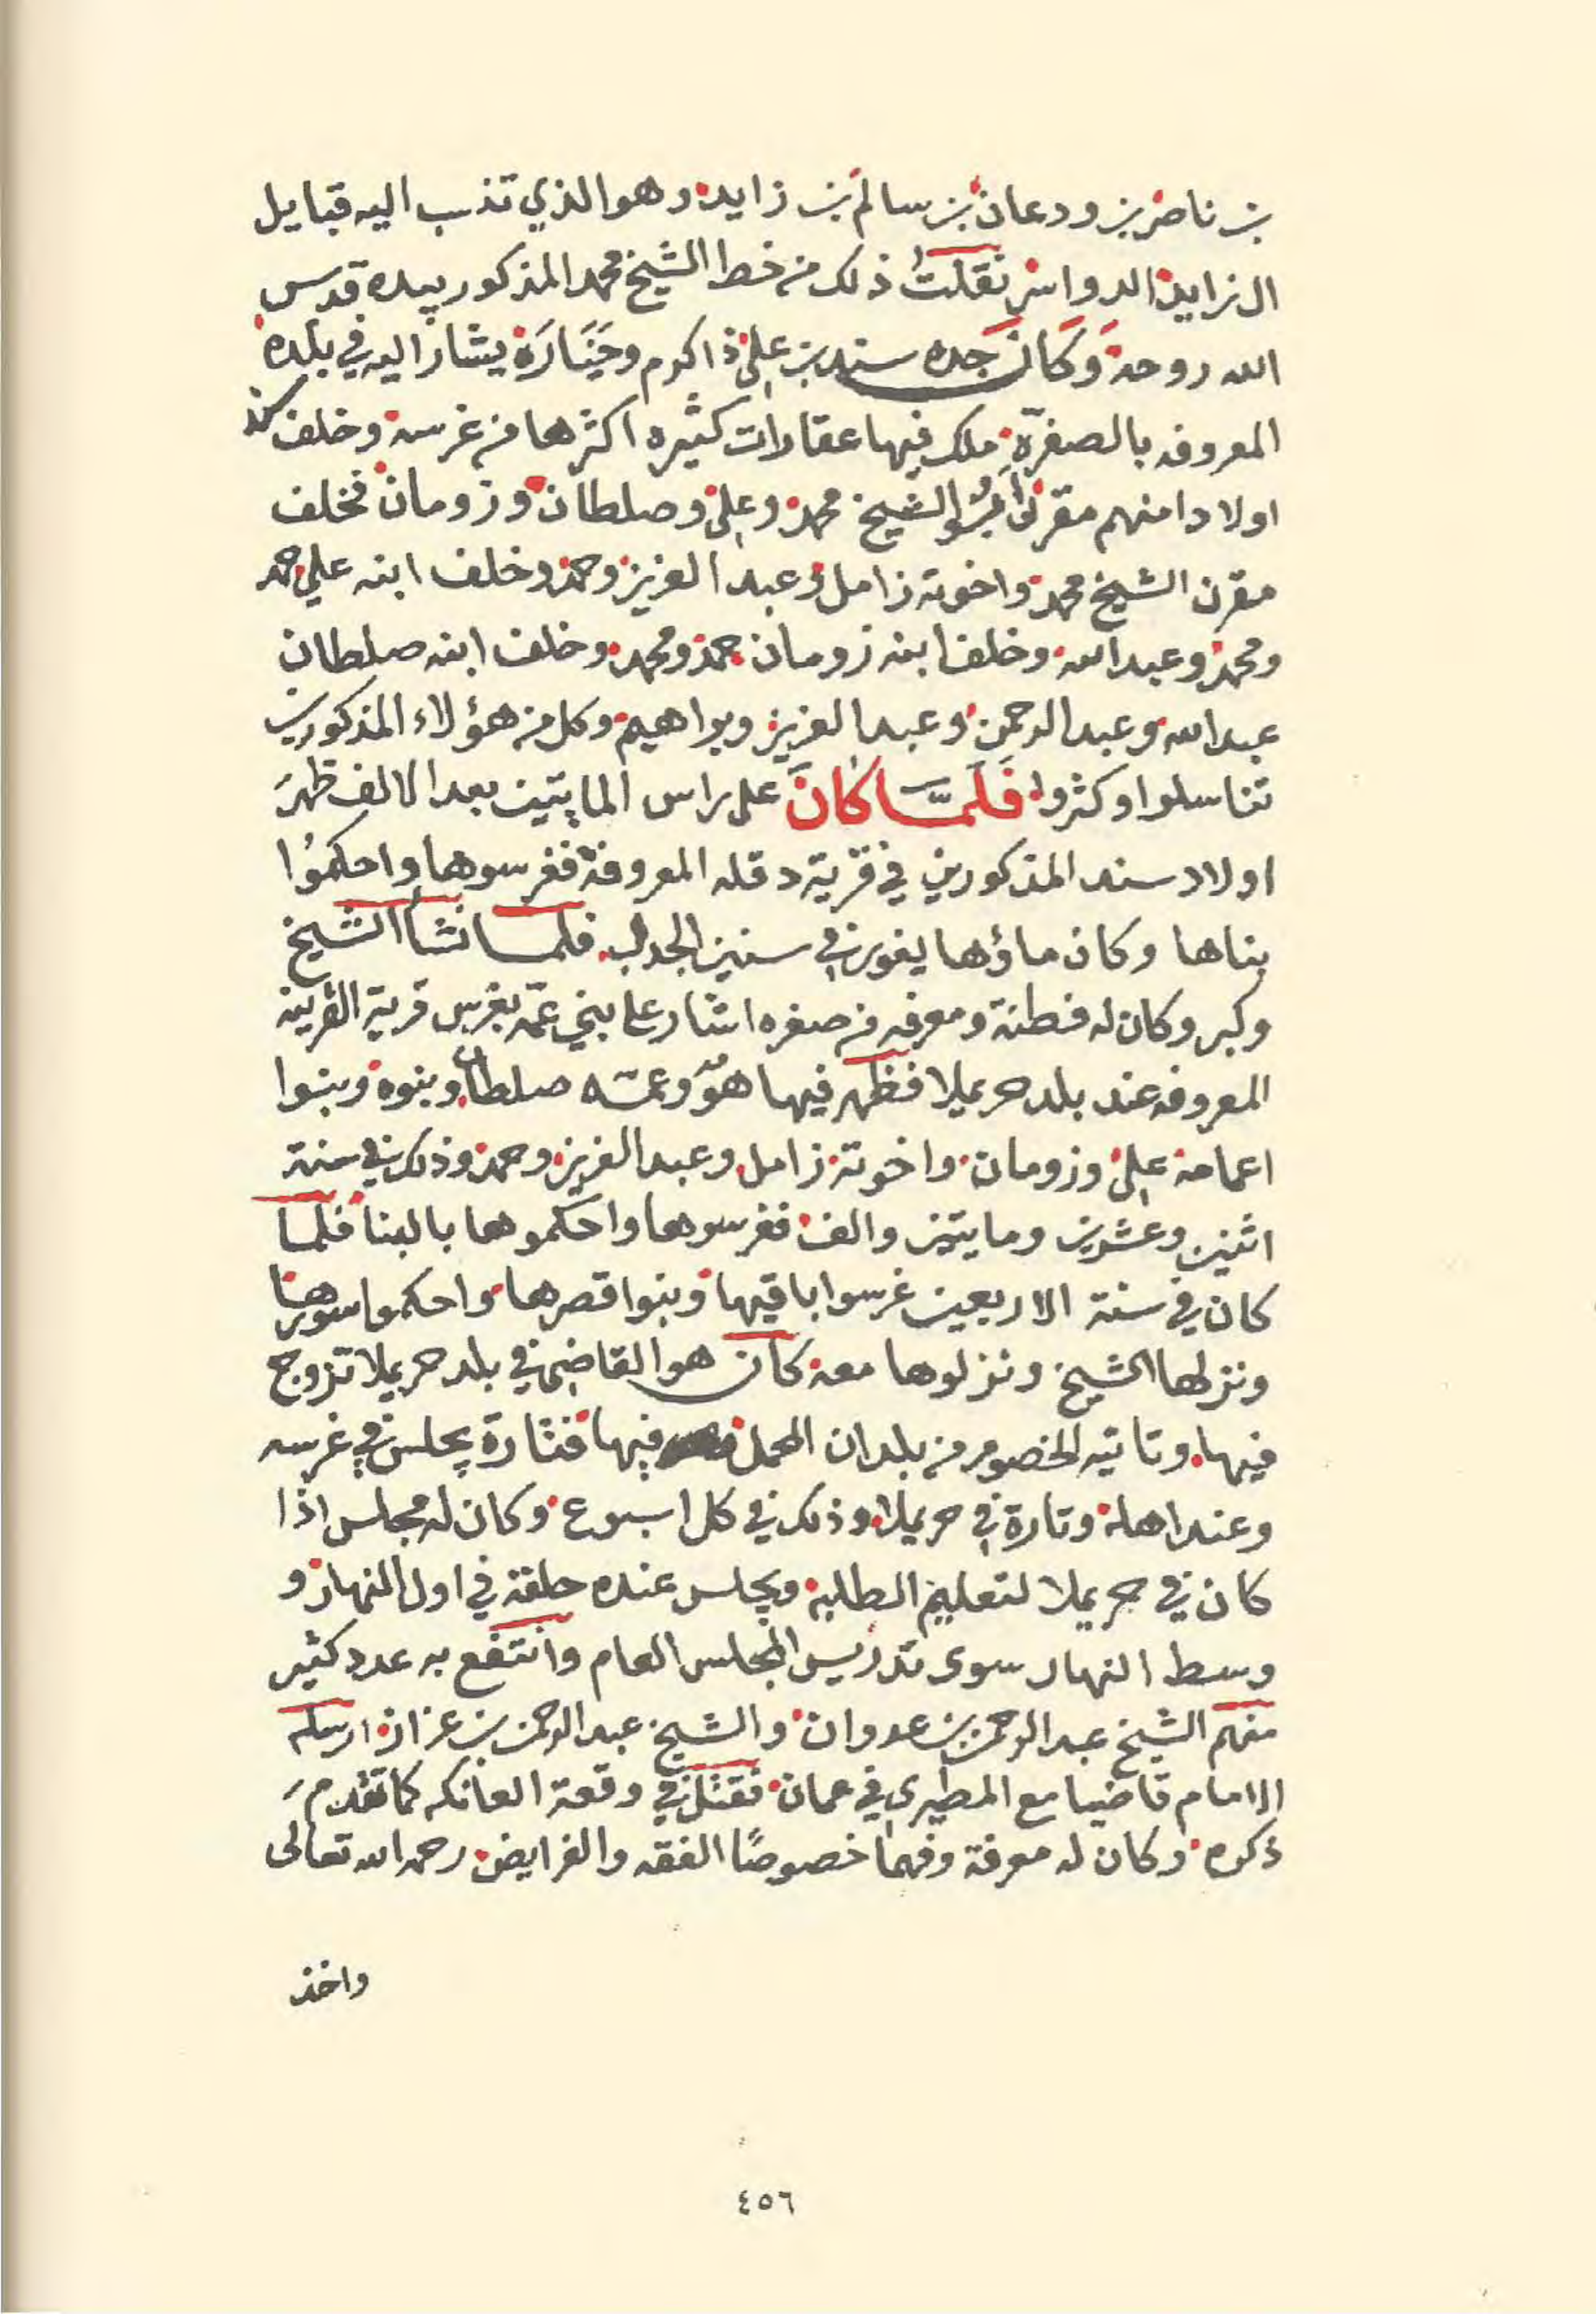 بن ناصر بن ودعان بن سالم بن زايد وهو الذي تنسب اليه قبايل
ال زايد الدواسر نقلت ذلك من خط الشيخ محمد المذكور بيده قدس
الله روحه وكان جده سند بن علي ذا كرم وحَيَّارَة يشار اليه في بلده
المعروفه بالصفرّه ملك فيها عقارات كثيره اكثرها من غرسه وخلف
اولادا منهم مقرن ابو الشيخ محمد وعلي وصلطان وزومان فخلف
مقرن الشيخ محمد واخوته زامل وعبد العزيز وحمد وخلف ابنه علي حمد
ومحمد وعبدالله وخلف ابنه زومان حمد ومحمد وخلف ابنه صلطان
عبدالله وعبد الرحمن وعبد العزيز وبراهيم وكل من هؤلاء المذكورين
تناسلوا وكثروا فلمَّا كانَ على راس المايتين بعد الالف ظهرَ
اولاد سند المذكورين في قرية دقله المعروفة فغرسوها واحكمُوا
بناها وكان ماؤها يغور في سنين الجدب فلما نشأ الشيخ
وكبر وكان له فطنة ومعرفه من صغره اشار على بني عمّه بغرس قرية القرينه
المعروفه عند بلد حريملا فظهر فيها هوَ وعمّه صلطان وبنوه وبنوا
اعمامه علي وزومان واخوته زامل وعبد العزيز وحمد وذلك في سنة
اثنين وعشرين ومايتين والف فغرسوها واحكموها بالبنا فلما
كان في سنة الاربعين غرسوا باقيها وبنوا قصرها واحكموا سورها
ونزلها الشيخ ونزلوها معه كان هو القاضي في بلد حريملا تزوج
فيها وتاتيه الخصوم من بلدان المحمل فيها فتارة يجلس في غرسه
وعند اهله وتارة في حريملا وذلك في كل اسبوع وكان له مجلس اذا
كان في حريملا لتعليم الطلبه ويجلس عنده حلقة في اول النهار و
وسط النهار سوى تدريس المجلس العام وانتفع به عدد كثير
منهم الشيخ عبد الرحمن بن عدوان والشيخ عبد الرحمن بن عزاز ارسله
الامام قاضيا مع المطيري في عمان فقتل في وقعة العانكه كما تقدم
ذكره وكان له معرفة وفهما خصوصًا الفقه والفرايض رحمه الله تعالى
واخذ
٤٥٦